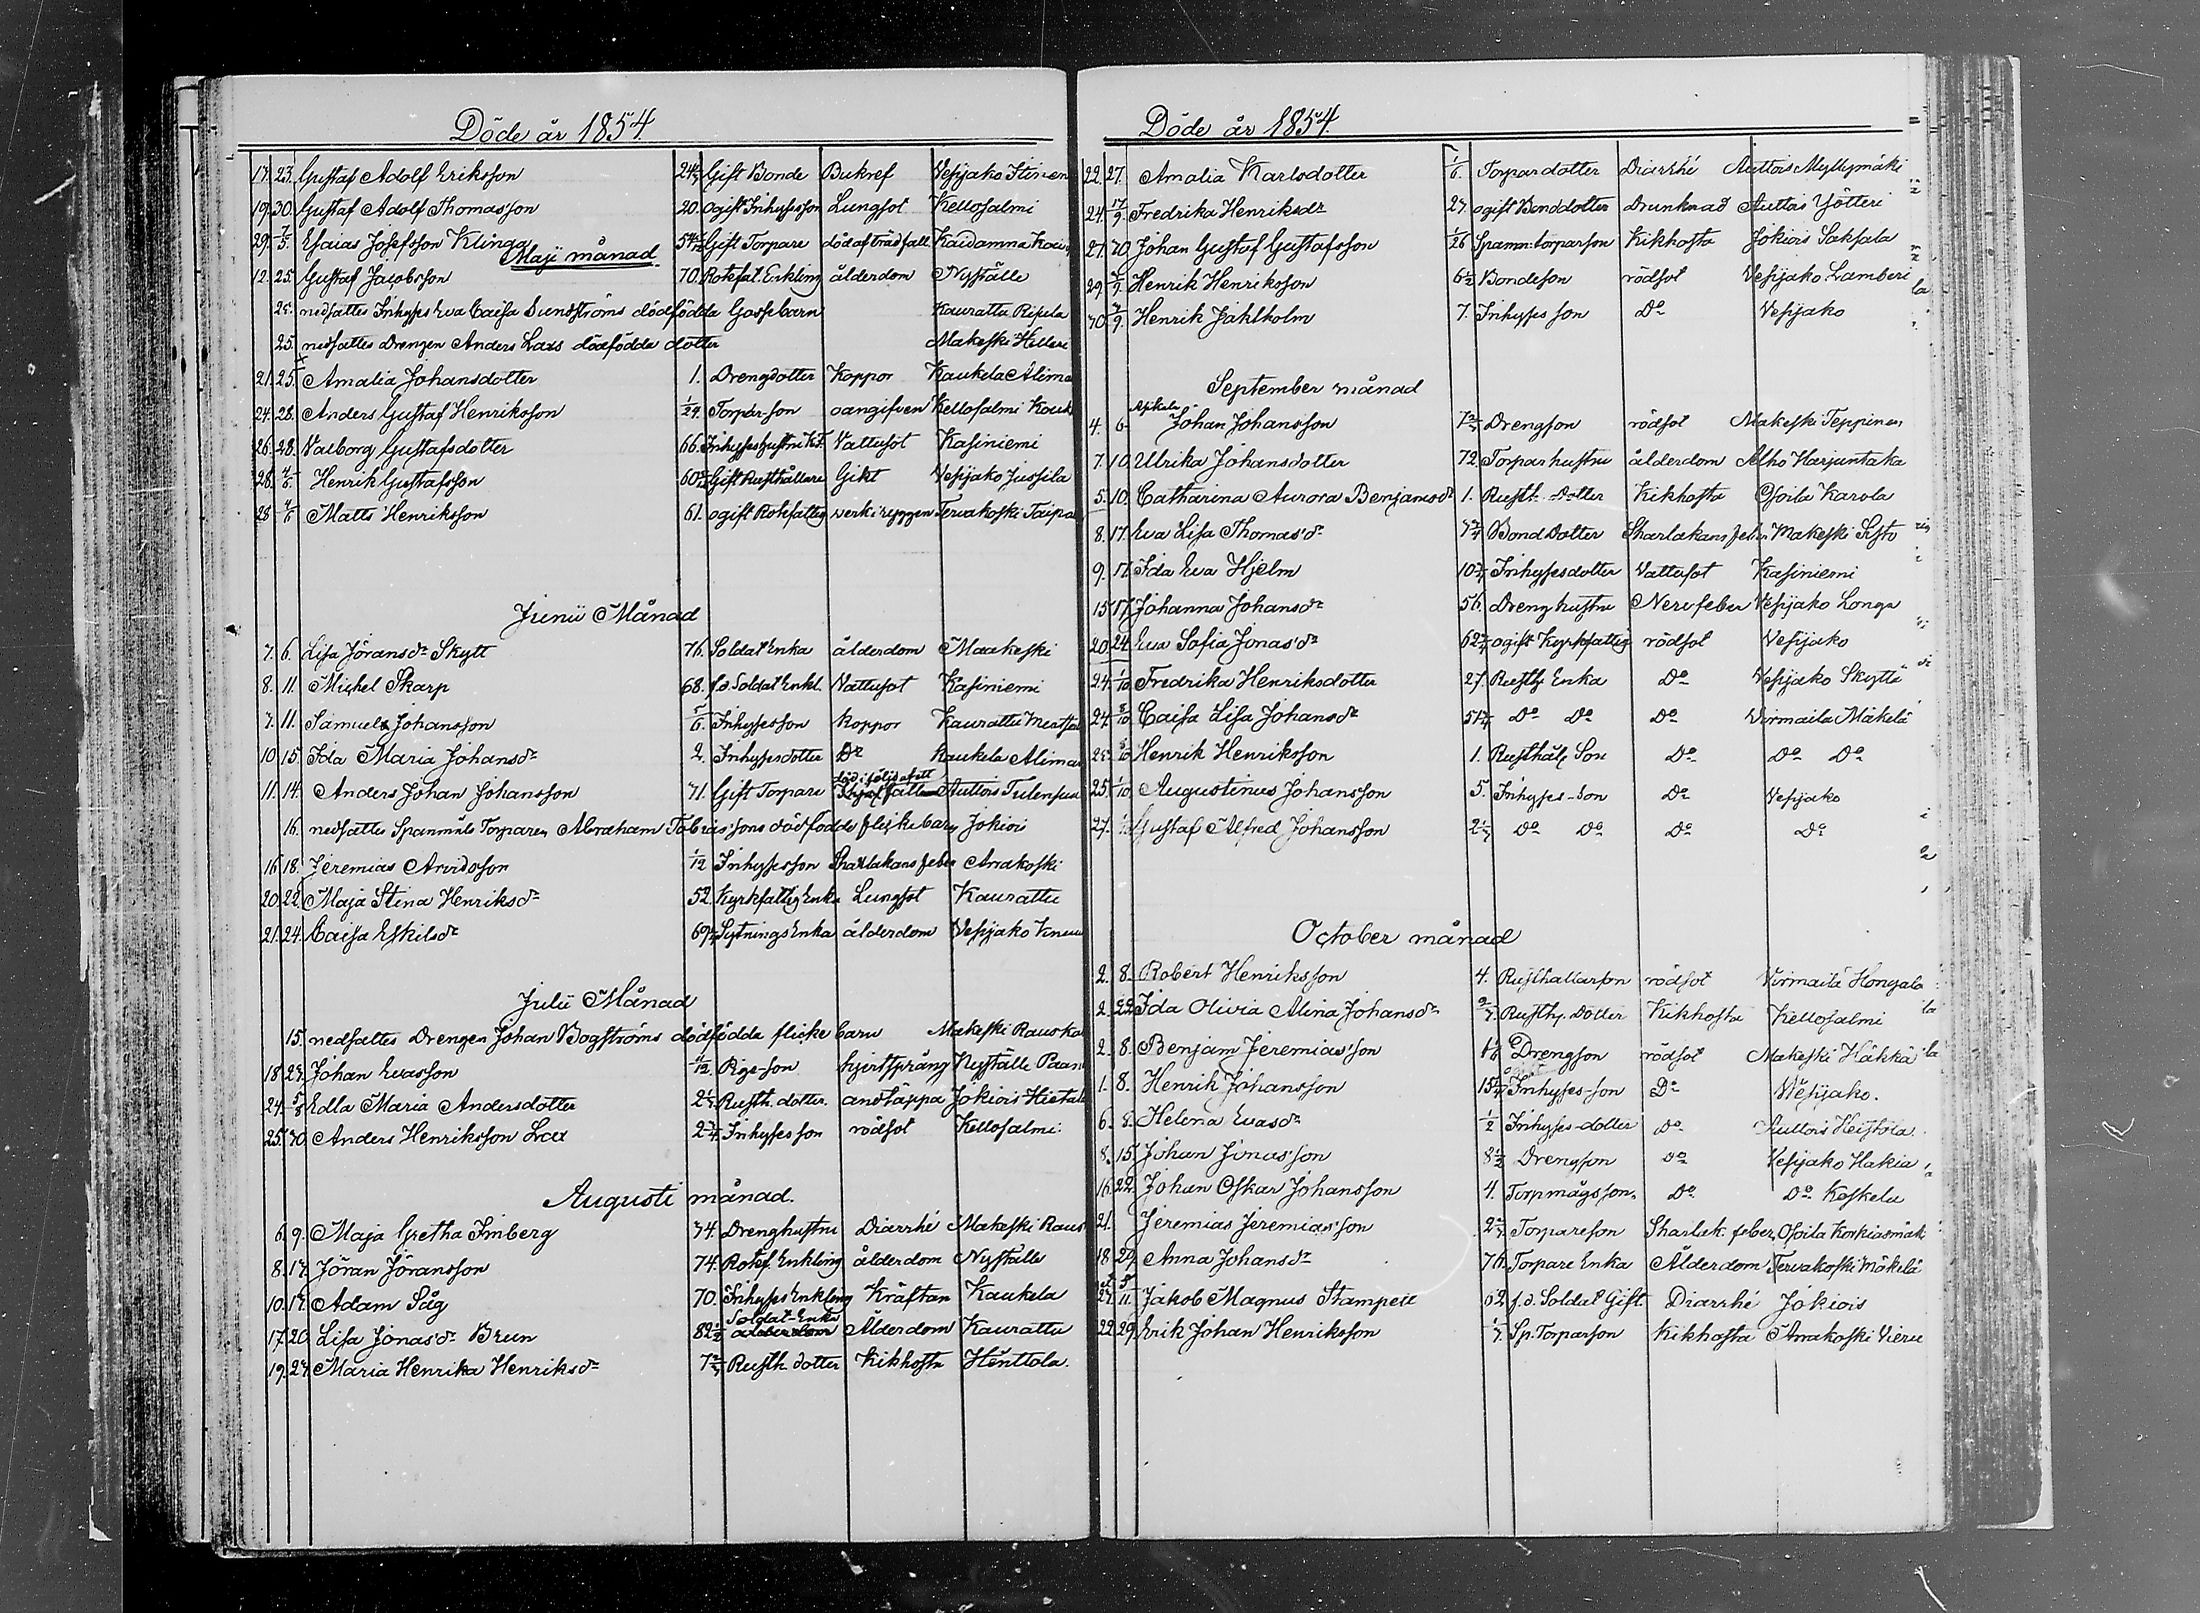 Döde år 1854.
17. 23. Gustaf Adolf Eriksson Gift Bonde Bukref Vesijako
19. 30. Gustaf Adolf Thomasson 20. ogift Inhysesson Lungsot Kellosalmi
29. 7/5. Esaias Josefsson Klinga Gift Torpare död af trädfall
Maji månad.
12. 25. Gustaf Jacobsson 70. Rotefat. Enkling ålderdom Nyställe
25. nedsattes Inhyses Eva Caisa Sundströms dödfödda Gossebarn Kaurattu
25. nedsattes Drengen Anders Laxs dödfödda dotter Makeski
21. 25. Amalia Johansdotter 1. Drengdotter Koppor Kaukela
24. 28. Anders Gustaf Henriksson 1/24. Torpar-son oangifven Kellosalmi
26. 28. Valborg Gustafsdotter 66. Vattusot Kasiniemi
28. 4/6 Henrik Gustafsson Gift Rusthållare Gikt Vesijako Jussila
28 4/6 Matts Henriksson 61. ogift Rotefattig verk i ryggen Tervakoski
Junii Månad
7. 6. Lisa Joransdr Skytt 76. Soldat Enka ålderdom Maakeski
8. 11. Michel Skarp 68. f.d. Soldat Enkl. Vattusot Kasiniemi
7. 11. Samuel Johansson Inhysesson Koppor Kaurattu
10 15. Ida Maria Johansdr 2. Inhysesdotter Do Kaukela
11. 14. Anders Johan Johansson 71. Gift Torpare död i följd af ett Auttois
16. nedsattes Spanmåls Torparen Abraham Tobiassons dödfödde flickebarn Jokiois
16 18. Jeremias Arvidsson 1/12 Inhysesson Sharlakans feber Arrakoski
20. 22. Maja Stina Henriksdr 52. Kyrkfattig Enka Lungsot Kaurattu
21. 24. Caisa Eskilsdr Sytnings Enka ålderdom Vesijako
Julii Månad
15. nedsattes Drengen Johan Bogströms dödfödda flickebarn Makeski
18 27. Johan Evasson hjertsprång Nyställe
24. 5/8 Edla Maria Andersdotter Rusth. dotter. andtäppa Jokiois
25. 30 Anders Henriksson Lax Inhyses son rödsot Kellosalmi
Augusti månad.
6. 9. Maja Gretha Imberg 74. Drenghustru Diarrhé Makeski
8. 13. Jöran Jöransson 74. Rotef. Enkling ålderdom Nyställe
10. 13. Adam Såg 70. Inhyses Enkling Kräftan Kaukela
17. 20 Lisa Jonasdr Brun 82 1/2 Soldat-Enka Ålderdom Kaurattu
19. 27. Maria Henrika Henriksdr Rusth. dotter Kikhosta Henttola.
Döde år 1854.
22. 27. Amalia Karlsdotter Torpardotter Diarrhé Auttois Myllymäki
24. 17/9. Fredrika Henriksdr 27. ogift Bonddotter Drunknad Auttois
27. 30 Johan Gustaf Gustafsson 1/26 Spanm: torparson Kikhosta Jokiois Saksala
29. 3/9. Henrik Henriksson 6 1/2 Bondeson rödsot Vesijako Lamberi
30. 3/9. Henrik Jahlholm 7. Inhyses son Do Vesijako
September månad
4. 6. Johan Johansson Drengson rödsot Makeski Teppinen
7. 10. Ulrika Johansdotter 72. Torparhustru ålderdom Alho Harjuntaka
5. 10. Catharina Aurora Benjamsdr 1. Rusth. Dotter Kikhosta Osoila Karola
8. 17. Eva Lisa Thomasdr Bond Dotter Sharlakans feber Makeski
9. 17. Ida Eva Hjelm Inhysesdotter Vattusot Kasiniemi
15 17. Johanna Johansdr 56. Dreng hustru Nervfeber Vesijako
20. 24. Eva Sofia Jonasdr ogift Kyrkfattig rödsot Vesijako
24. 1/10 Fredrika Henriksdotter 27. Rusth. Enka Do Vesijako Skyttä
24. 8/10 Caisa Lisa Johansdr Do Do Do Virmaila Mäkelä
Henrik Henriksson 1. Rusthåll. Son Do Do Do
25. 1/10 Augustinus Johansson 5. Inhyses-son Do Vesijako
27. Gustaf Alfred Johansson Do Do Do Do
October månad
2. 8. Robert Henriksson 4. Rusthållarson rödsot Virmaila
2. 22. Ida Olivia Alina Johansdr Rusth. Dotter Kikhosta Kellosalmi
2. 8. Benjam Jeremiasson Drengson rödsot Makeski
1. 8. Henrik Johansson Inhyses-son Do Vesijako.
6. 8. Helena Evasdr 1/2 Inhyses-dotter Do Auttois Heistola.
8. 15. Johan Jonasson 8 1/2 Drengson Do Vesijako Hakia
16. 22. Johan Oskar Johansson 4. Torpmågsson. Do Do Koskela
21. Jeremias Jeremiasson Torpareson Sharlak. feber. Osoila
18 29. Anna Johansdr 76. Torpare Enka Ålderdom Tervakoski Mäkelä
Jakob Magnus Stampell 62 f.d. Soldat Gift. Diarrhé Jokiois
22. 29. Erik Johan Henriksson Sp. Torparson Kikhosta Arrakoski